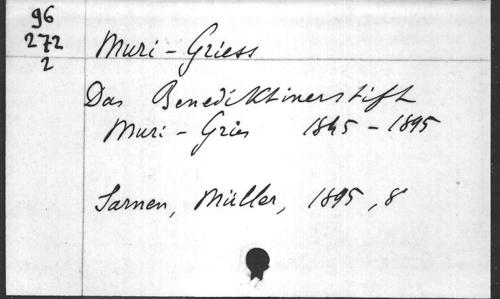 96
272
2
Muri - Griess
Das Benediktinerstift
Muri - Gries 1845 - 1895
Sarnen, Müller, 1895, 8°